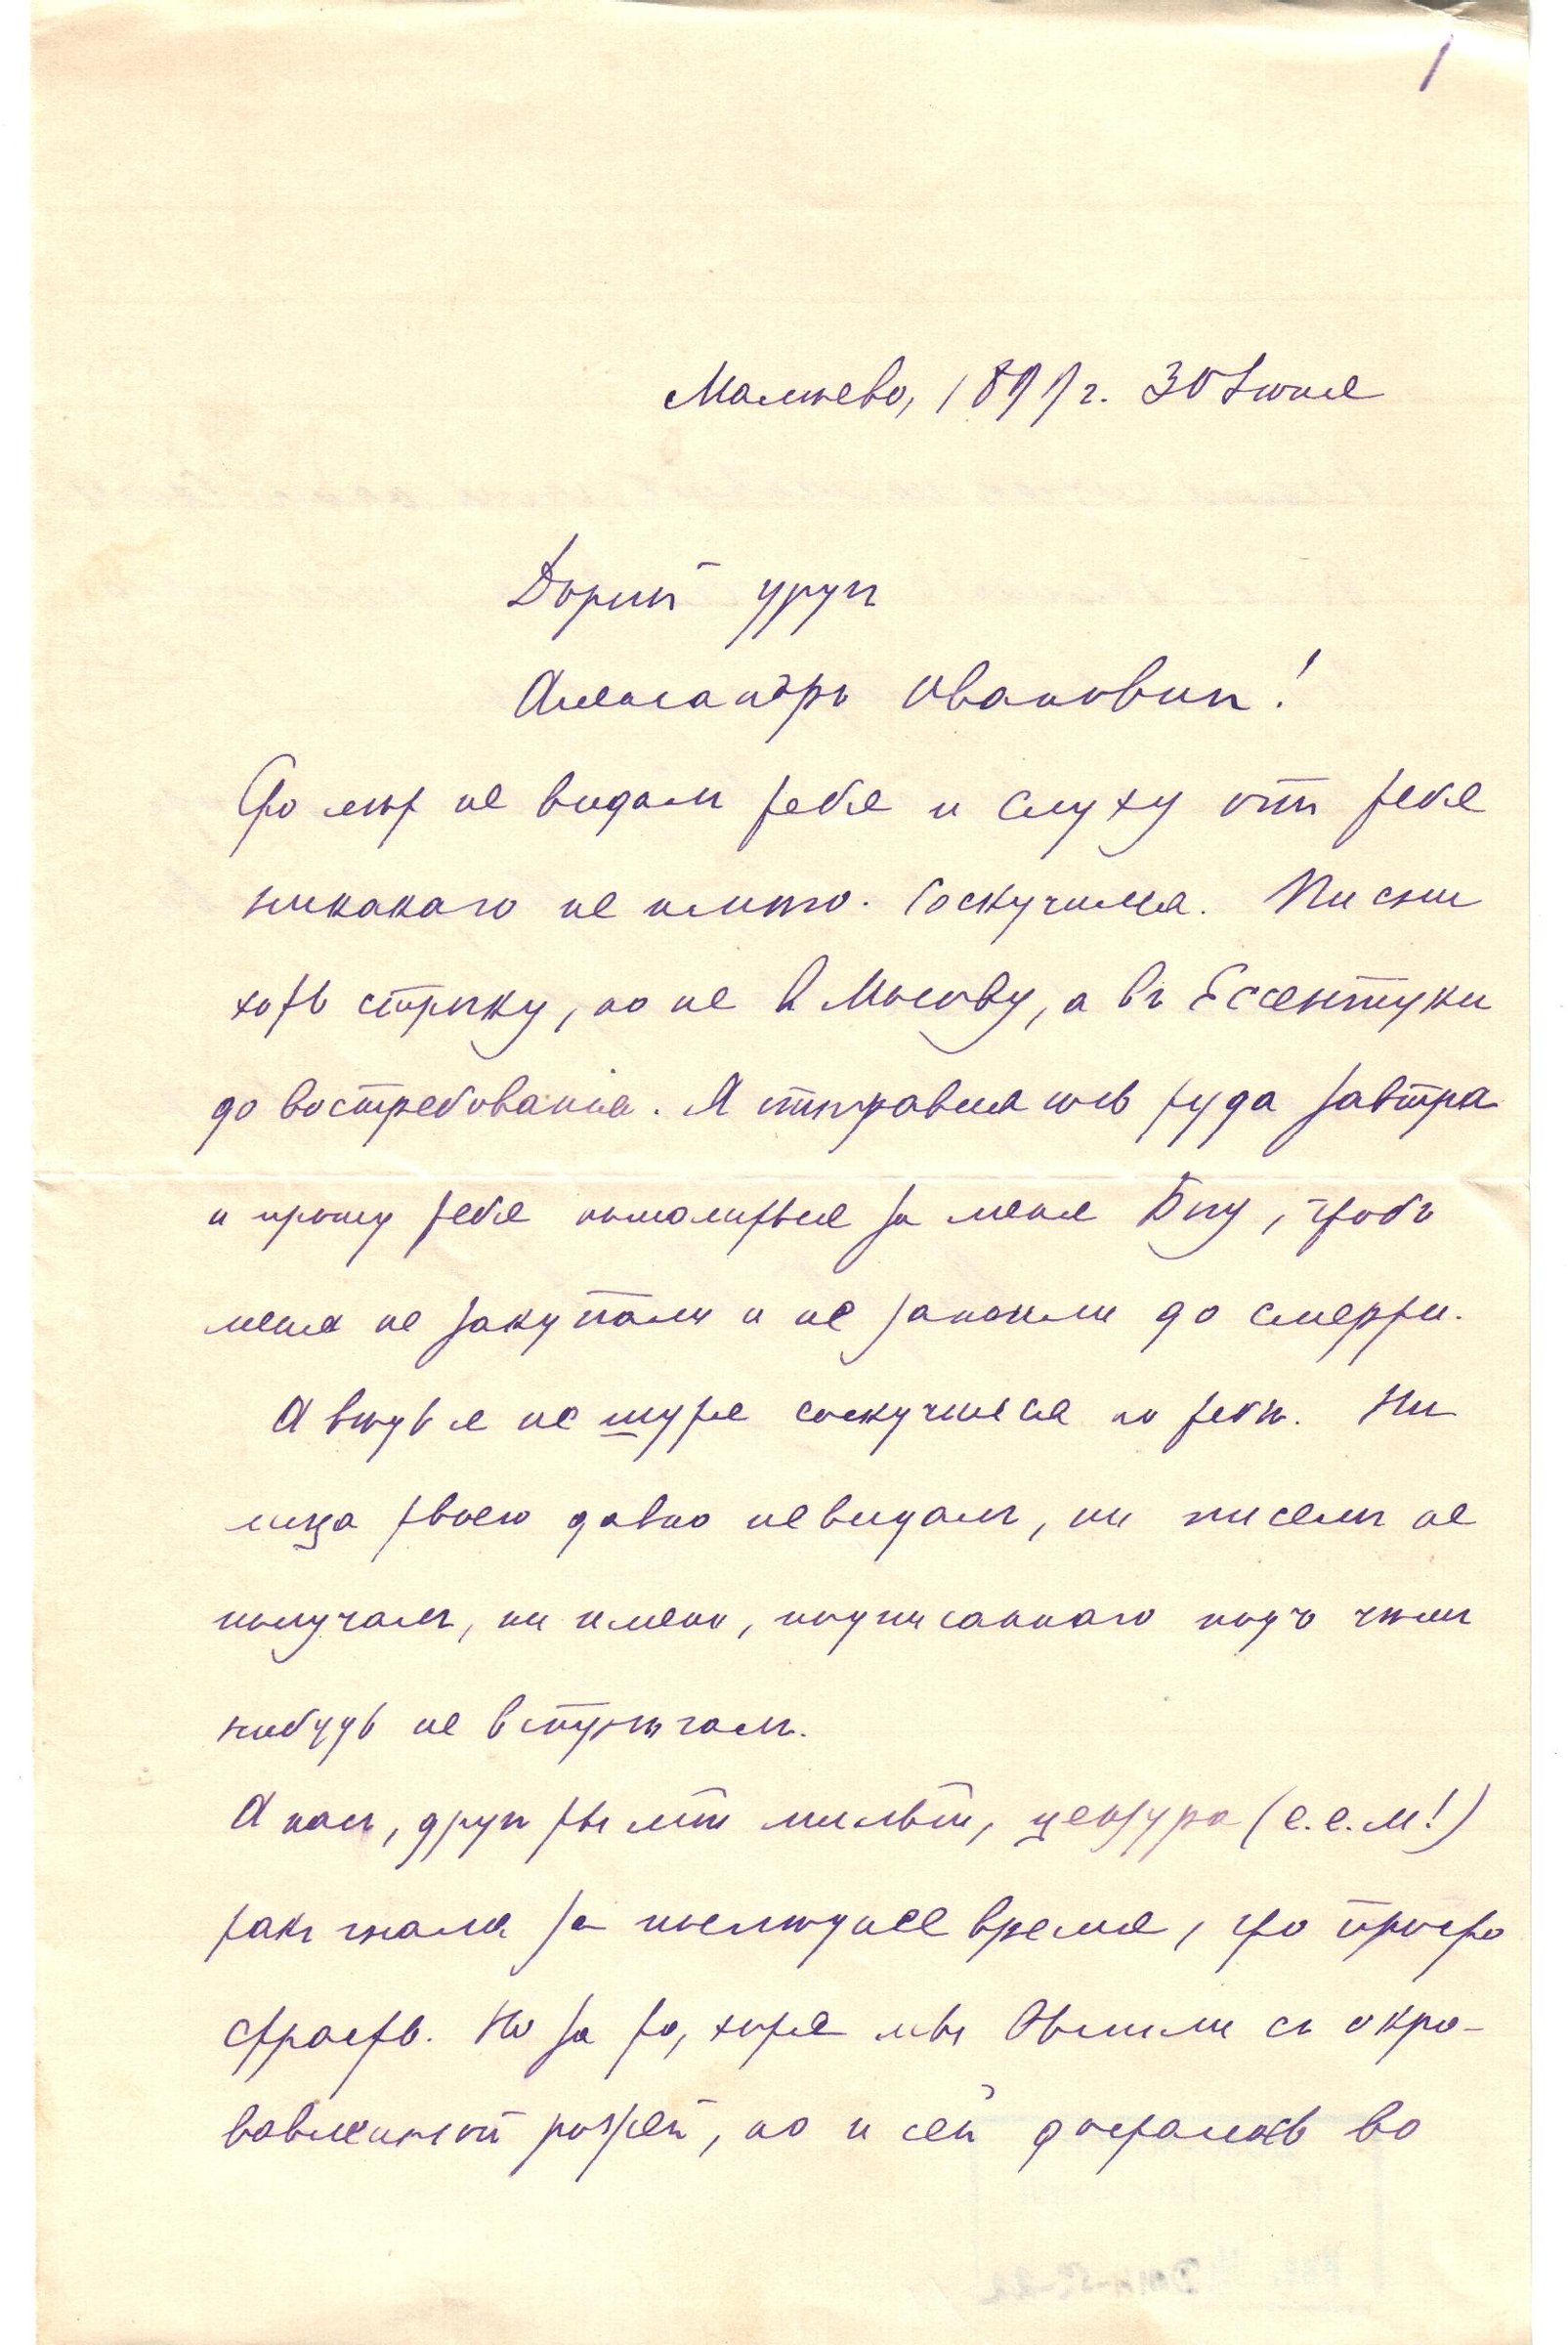 1
Мамыево, 1899 г. 30 Iюня
Дорогой другъ
Александръ Ивановичъ!
Сто лѣт не видалъ тебя и слуху отъ тебя
никакаго не имѣю. Соскучился. Пиши
хоть строку, но не в Москву, а въ Ессентуки
до востребованiя. Я отправляюсь туда завтра
и прошу тебя помолиться за меня Богу, чтобъ
меня не закупали и не запоили до смерти.
А вѣдь я не шутя соскучился по тебѣ. Ни
лица твоего давно не видалъ, ни писемъ не
получалъ, ни имени, подписаннаго подъ чѣмъ
нибудь не встрѣчалъ.
А насъ, другъ ты мой милый, цензура (е.е.м!)
такъ жала за послѣднее время, что просто
страсть. Но за то, хотя мы вышли съ окро-
вавленной рожей, но и ей досталось во